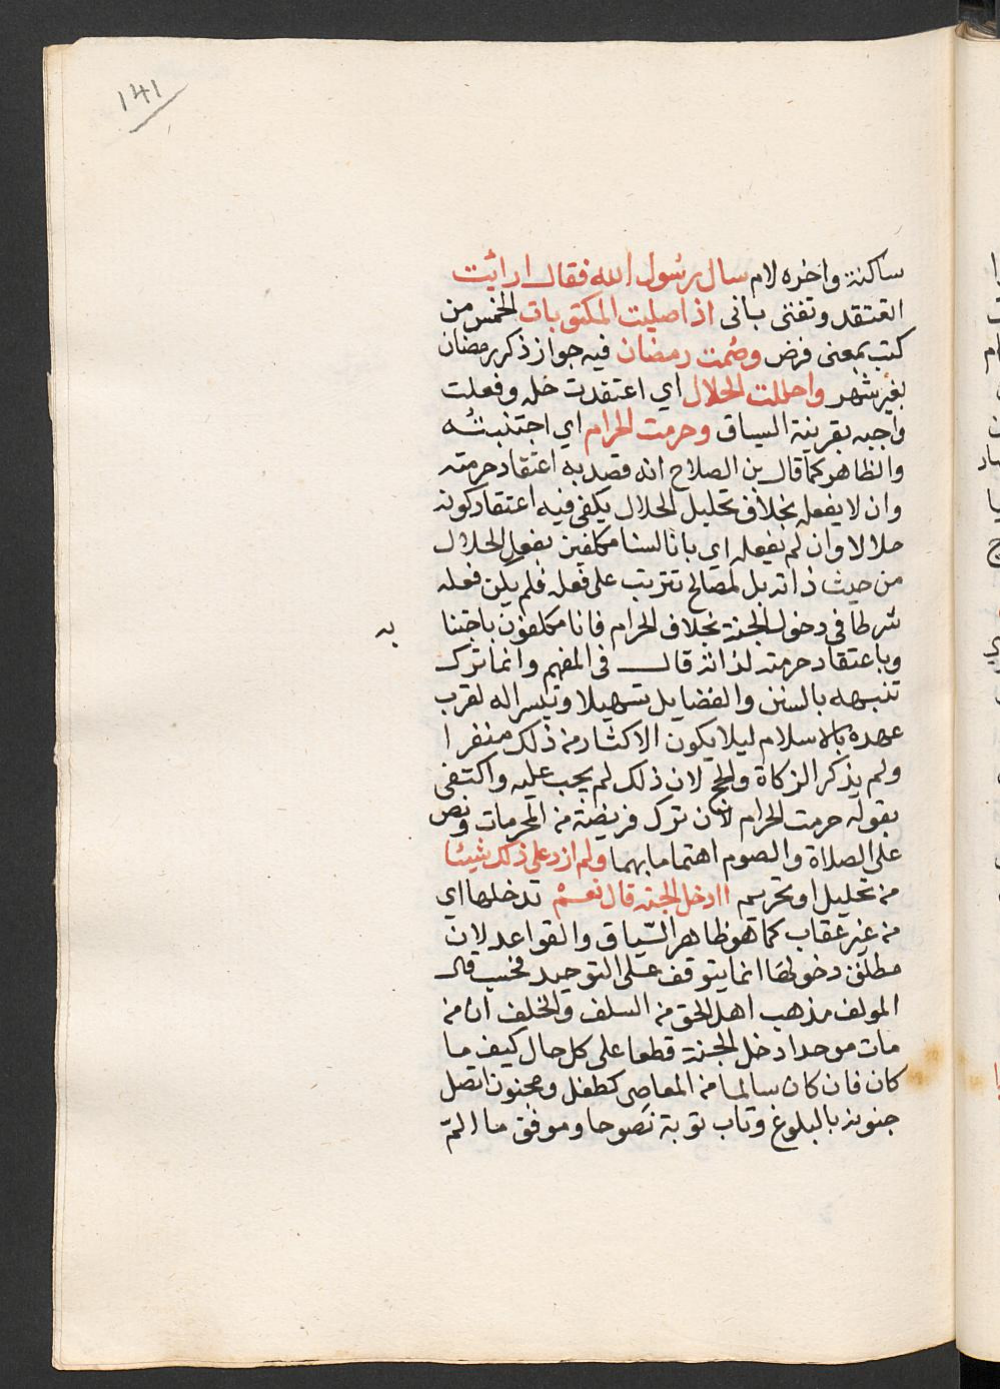 ١٤١
ساكنة واخره لام سال رسول الله فقال ارايت
اتعتقد وتفتى بانى اذا صليت المكتوبات الخمس من
كتب بمعنى فرض وصمت رمضان فيه جواز ذكر رمضان
بغير شهر واحللت الحلال اي اعتقدت حله وفعلت
واجبه بقرينة السياق وحرمت الحرام اي اجتنبته
والظاهر كما قال بن الصلاح انه قصد به اعتقاد حرمته
وان لا يفعله بخلاف تحليل الحلال يكفى فيه اعتقاد كونه
حلالا وان لم يفعله اي بانا لسنا مكلفين بفعل الحلال
من حيث ذاته بل لمصالح تترتب على فعله فلم يكن فعله
شرطا فى دخول الجنة بخلاف الحرام فانا مكلفون باجتنا
به
وباعتقاد حرمته لذاته قال فى المفهم وانما ترك
تنبيهه بالسنن والفضايل تسهيلا وتيسرا له لقرب
عهده بالاسلام ليلا يكون الاكثار من ذلك منفرا
ولم يذكر الزكاة والحج لان ذلك لم يجب عليه واكتفى
بقوله حرمت الحرام لان ترك فريضة من المحرمات ونص
على الصلاة والصوم اهتماما بهما ولم ازد على ذلك شيئا
من تحليل او تحريم اادخل الجنة قال نعم تدخلها اي
من غير عقاب كما هو ظاهر السياق والقواعد لان
مطلق دخولها انما يتوقف على التوحيد فحسب قال
المولف مذهب اهل الحق من السلف والخلف ان من
مات موحدا دخل الجنة قطعا على كل حال كيف ما
كان فان كان سالما من المعاصى كطفل ومجنون اتصل
جنونه بالبلوغ وتاب توبة نصوحا وموفق ما الم